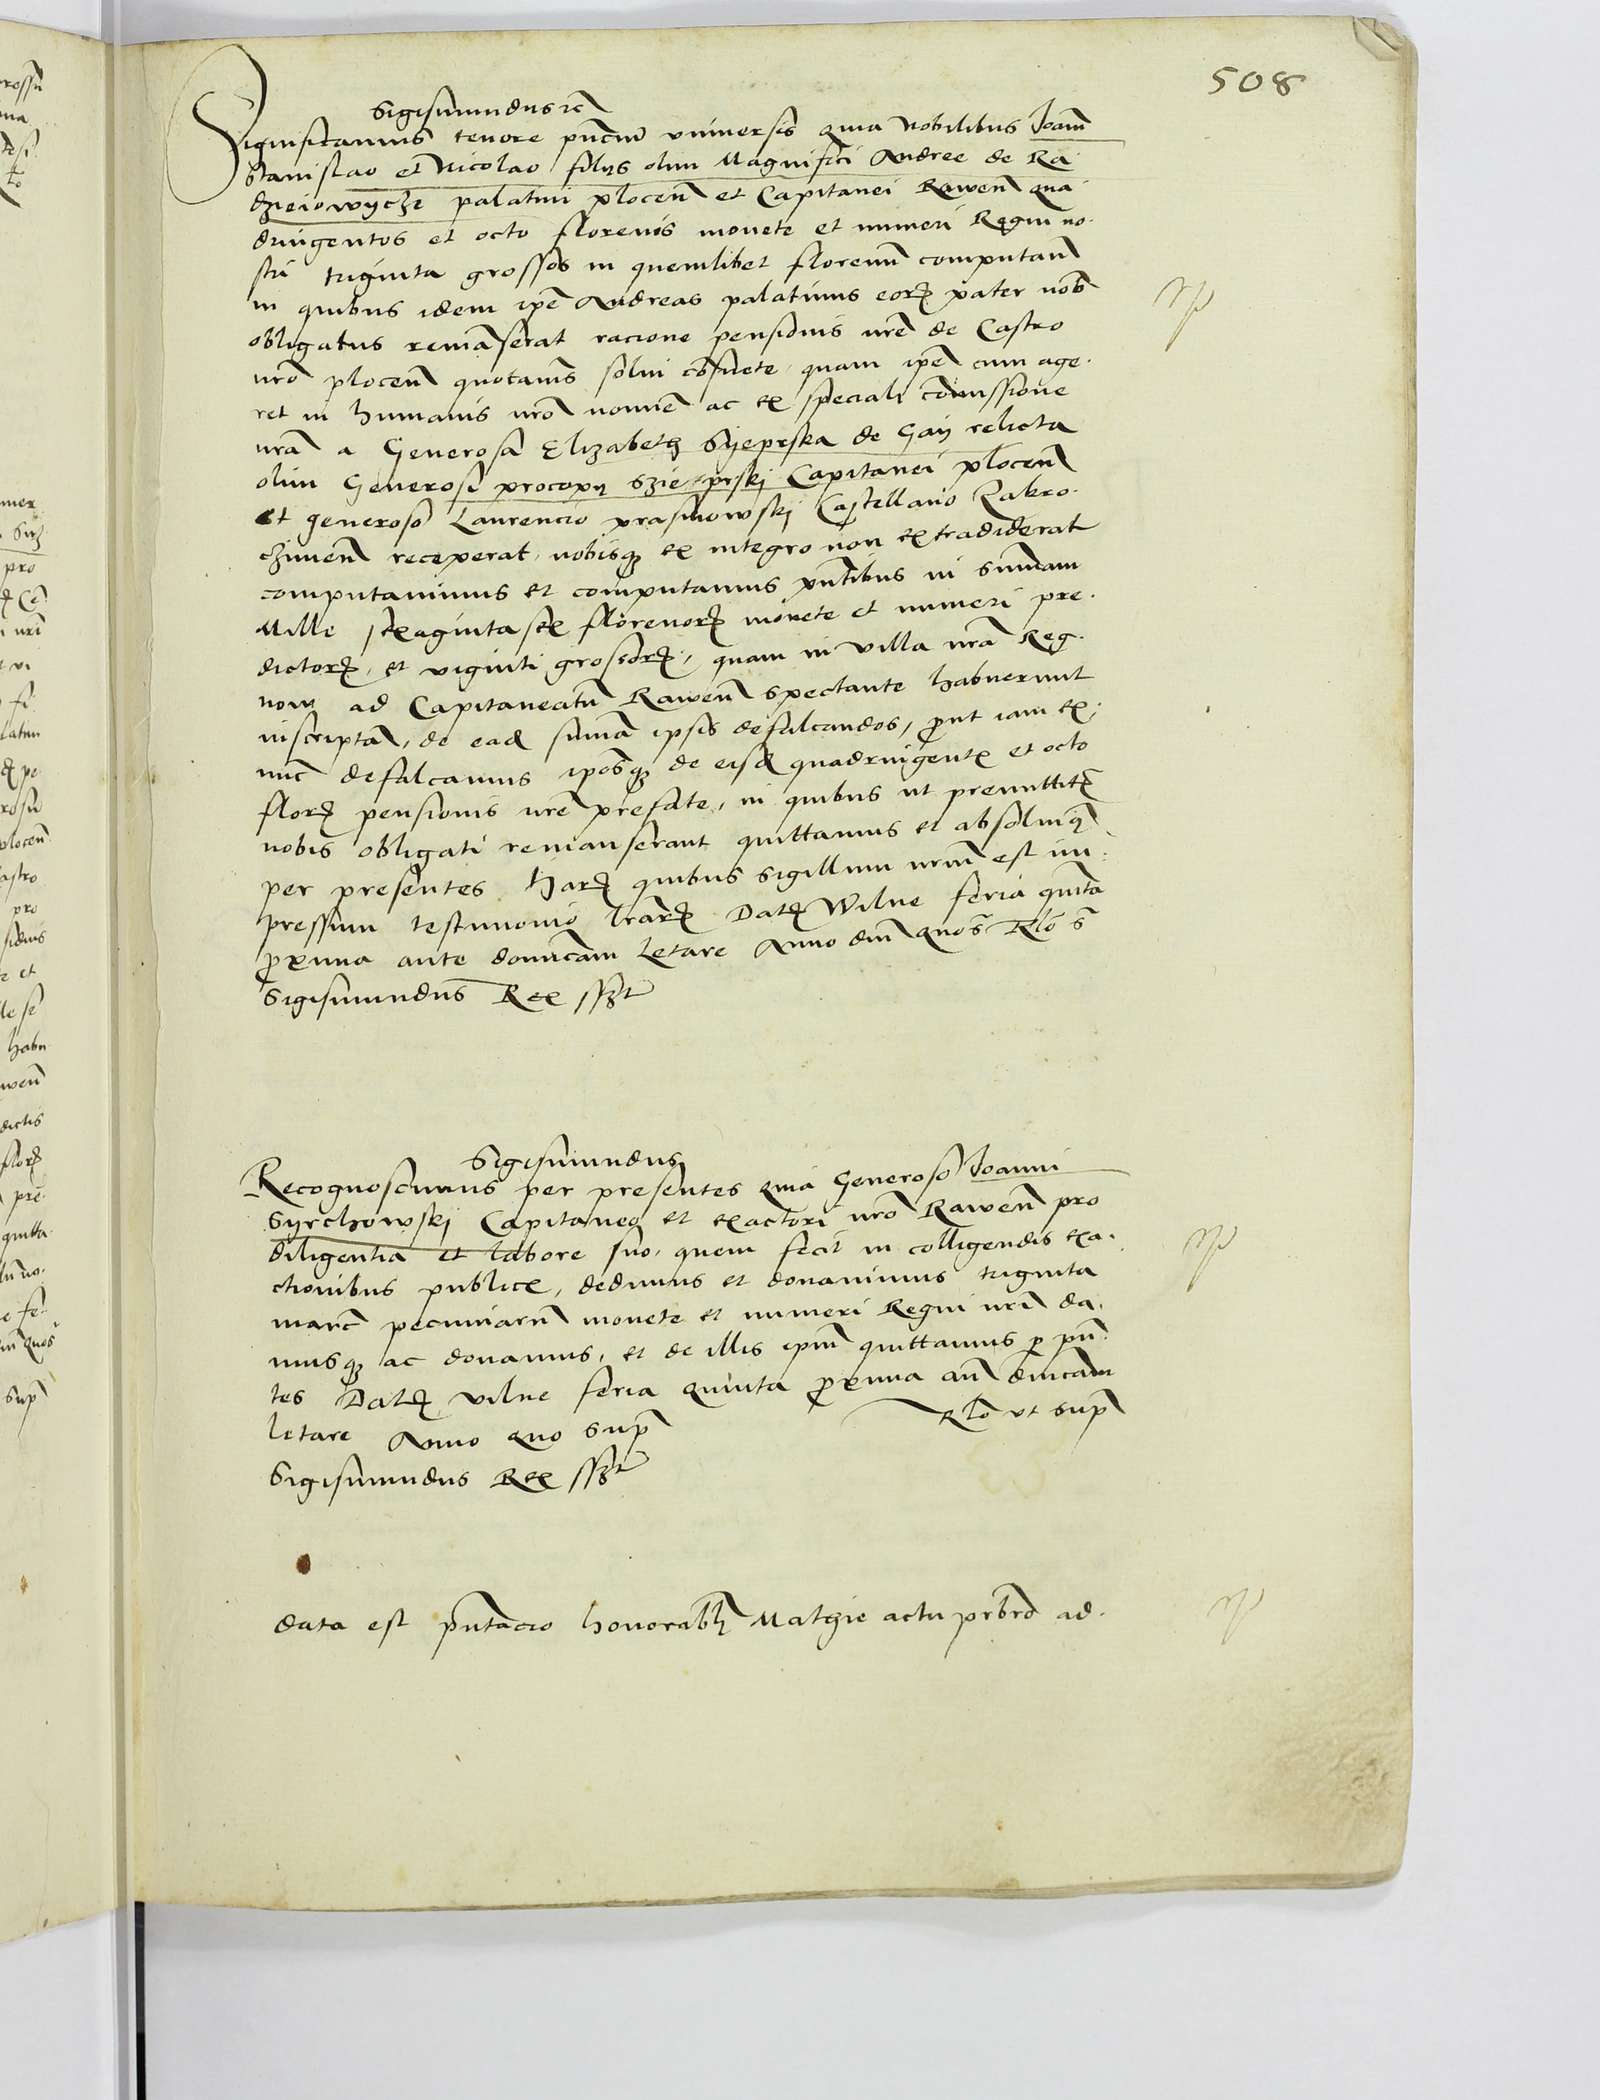 508
Sigismundus etc
Significamus tenore pñcium universis quia Nobilibus Ioanñ
Stanislao et Nicolao filijs olim Magnifici Andree de Ra
dzieiowycze palatini plocenñ et Capitanei Rawenñ qua
dringentos et octo florenos monete et numeri Regni no.
stri triginta grossos in quemlibet florenum computanñ
in quibus idem ipe Andreas palatinus eorꝝ pater nob̃
obligatus remanserat racione pensionis nrẽ de Castro
nrõ plocenñ quotannis solui cõsuete, quam ipẽ cum age.
ret in humanis nrõ nomiẽ ac ex speciali cõmissione
nrã a Generosa Elizabeth Syeprska de Gay relicta
olim Generosi procopij Szieprskj Capitanei plocenñ
et generoso Laurencio prasmowskj Castellano Zakro.
czimenñ receperat, nobisqꝫ ex integro non extradiderat
computauimus et computamus pñtibus in sum̃am
Mille sexaginta sex florenorꝝ monete et numeri pre.
dictorꝝ, et viginti grossorꝝ, quam in villa nrã Reg.
now ad Capitaneatũ Rawenñ spectante habuerunt
inscriptã, de eadẽ sum̃a ipsis defalcandos, prout iam ex
nũc defalcamus ipõsqꝫ de eisdẽ quadringentꝭ et octo
florꝝ pensionis nrẽ prefate, in quibus ut premittitꝛ
nobis obligati remanserant quittamus et absoluimꝰ
per presentes Harꝝ quibus sigillum nrũm est im
pressum testimonio lrarꝝ Datꝝ Wilne feria quinta
proxima ante dominicam Letare Anno dnĩ quo s̃ Rlõ s̃
Sigismundus Rex sszt
Sigismundus
Recognoscimus per presentes quia Generoso Ioanni
Syrchowskj Capitaneo et exactori nrõ Rawenñ pro
diligentia et labore suo, quem fecit in colligendis exa.
ctionibus publicꝭ, dedimus et donauimus triginta
marcꝭ pecuniarũ monete et numeri Regni nrĩ da.
musqꝫ ac donamus, et de illis ipm̃ quittamus p pñ.
tes Datꝝ Vilne feria quinta proxima anñ dnicam
letare Anno quo supꝛ
Rlõ ut supꝛ
Sigismundus Rex sszt
data est pñtacio honorabĩ Mathie actu prb̃ro ad.